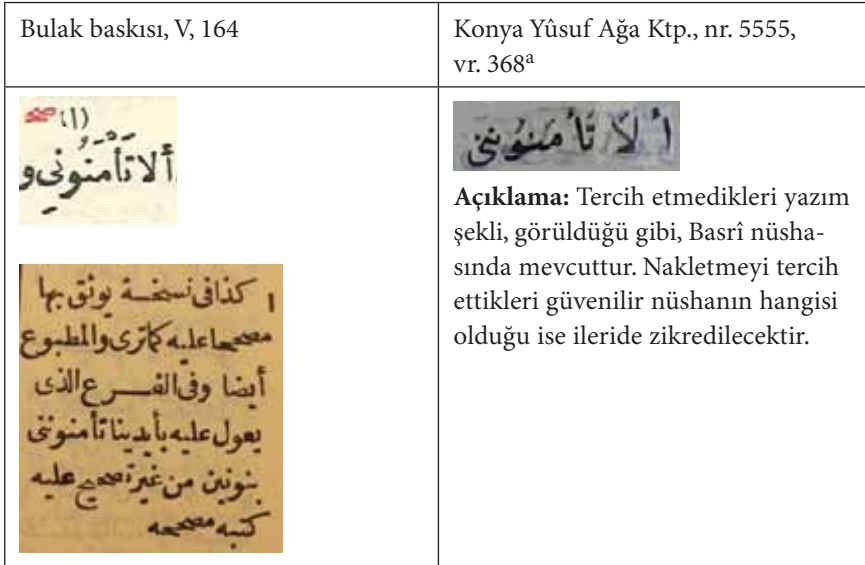 Bulak baskısı, V, 164
Konya Yûsuf Ağa Ktp., nr. 5555,
vr. 368a
صح (١)
ألا تَأْمَنُونِي و
١ كذا في نسخة يوثق بها
مصححا عليه كما ترى والمطبوع
أيضا وفي الفرع الذى
يعول عليه بأيدينا تأمنوننى
بنونين من غير تصحيح عليه
كتبه مصححه
ألَا تَأمَنُونني
Açıklama: Tercih etmedikleri yazım
şekli, görüldüğü gibi, Basrî nüsha-
sında mevcuttur. Nakletmeyi tercih
ettikleri güvenilir nüshanın hangisi
olduğu ise ileride zikredilecektir.